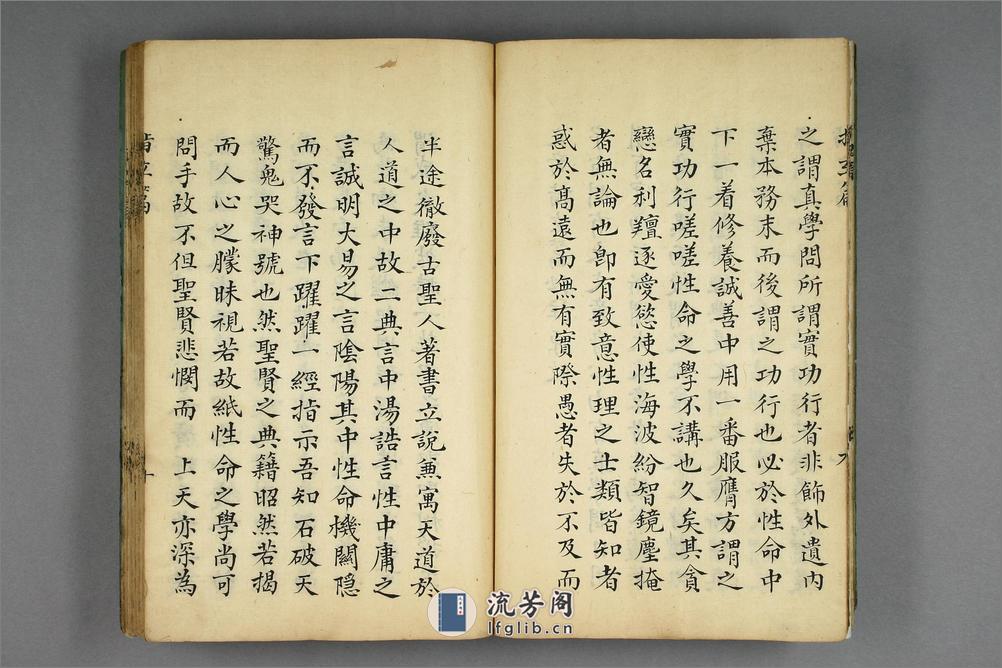 之謂真學問所謂實功行者非飾外遺内
棄本務末而後謂之功行也必於性命中
下一着修養誠善中用一番服膺方謂之
實功行嗟嗟性命之學不講也久矣其貪
戀名利羶逐愛慾使性海波紛智鏡塵掩
者無論也卽有致意性理之士類皆知者
惑於髙遠而無有實際愚者失於不及而
半途徹廢古聖人著書立說兼寓天道於
人道之中故二典言中湯誥言性中庸之
言誠明大易之言陰陽其中性命機關隱
而不發言下躍躍一經指示吾知石破天
驚鬼哭神號也然聖賢之典籍昭然若揭
而人心之矇昧視若故紙性命之學尚可
問乎故不但聖賢悲憫而 上天亦深為
流芳阁
lfglib.cn